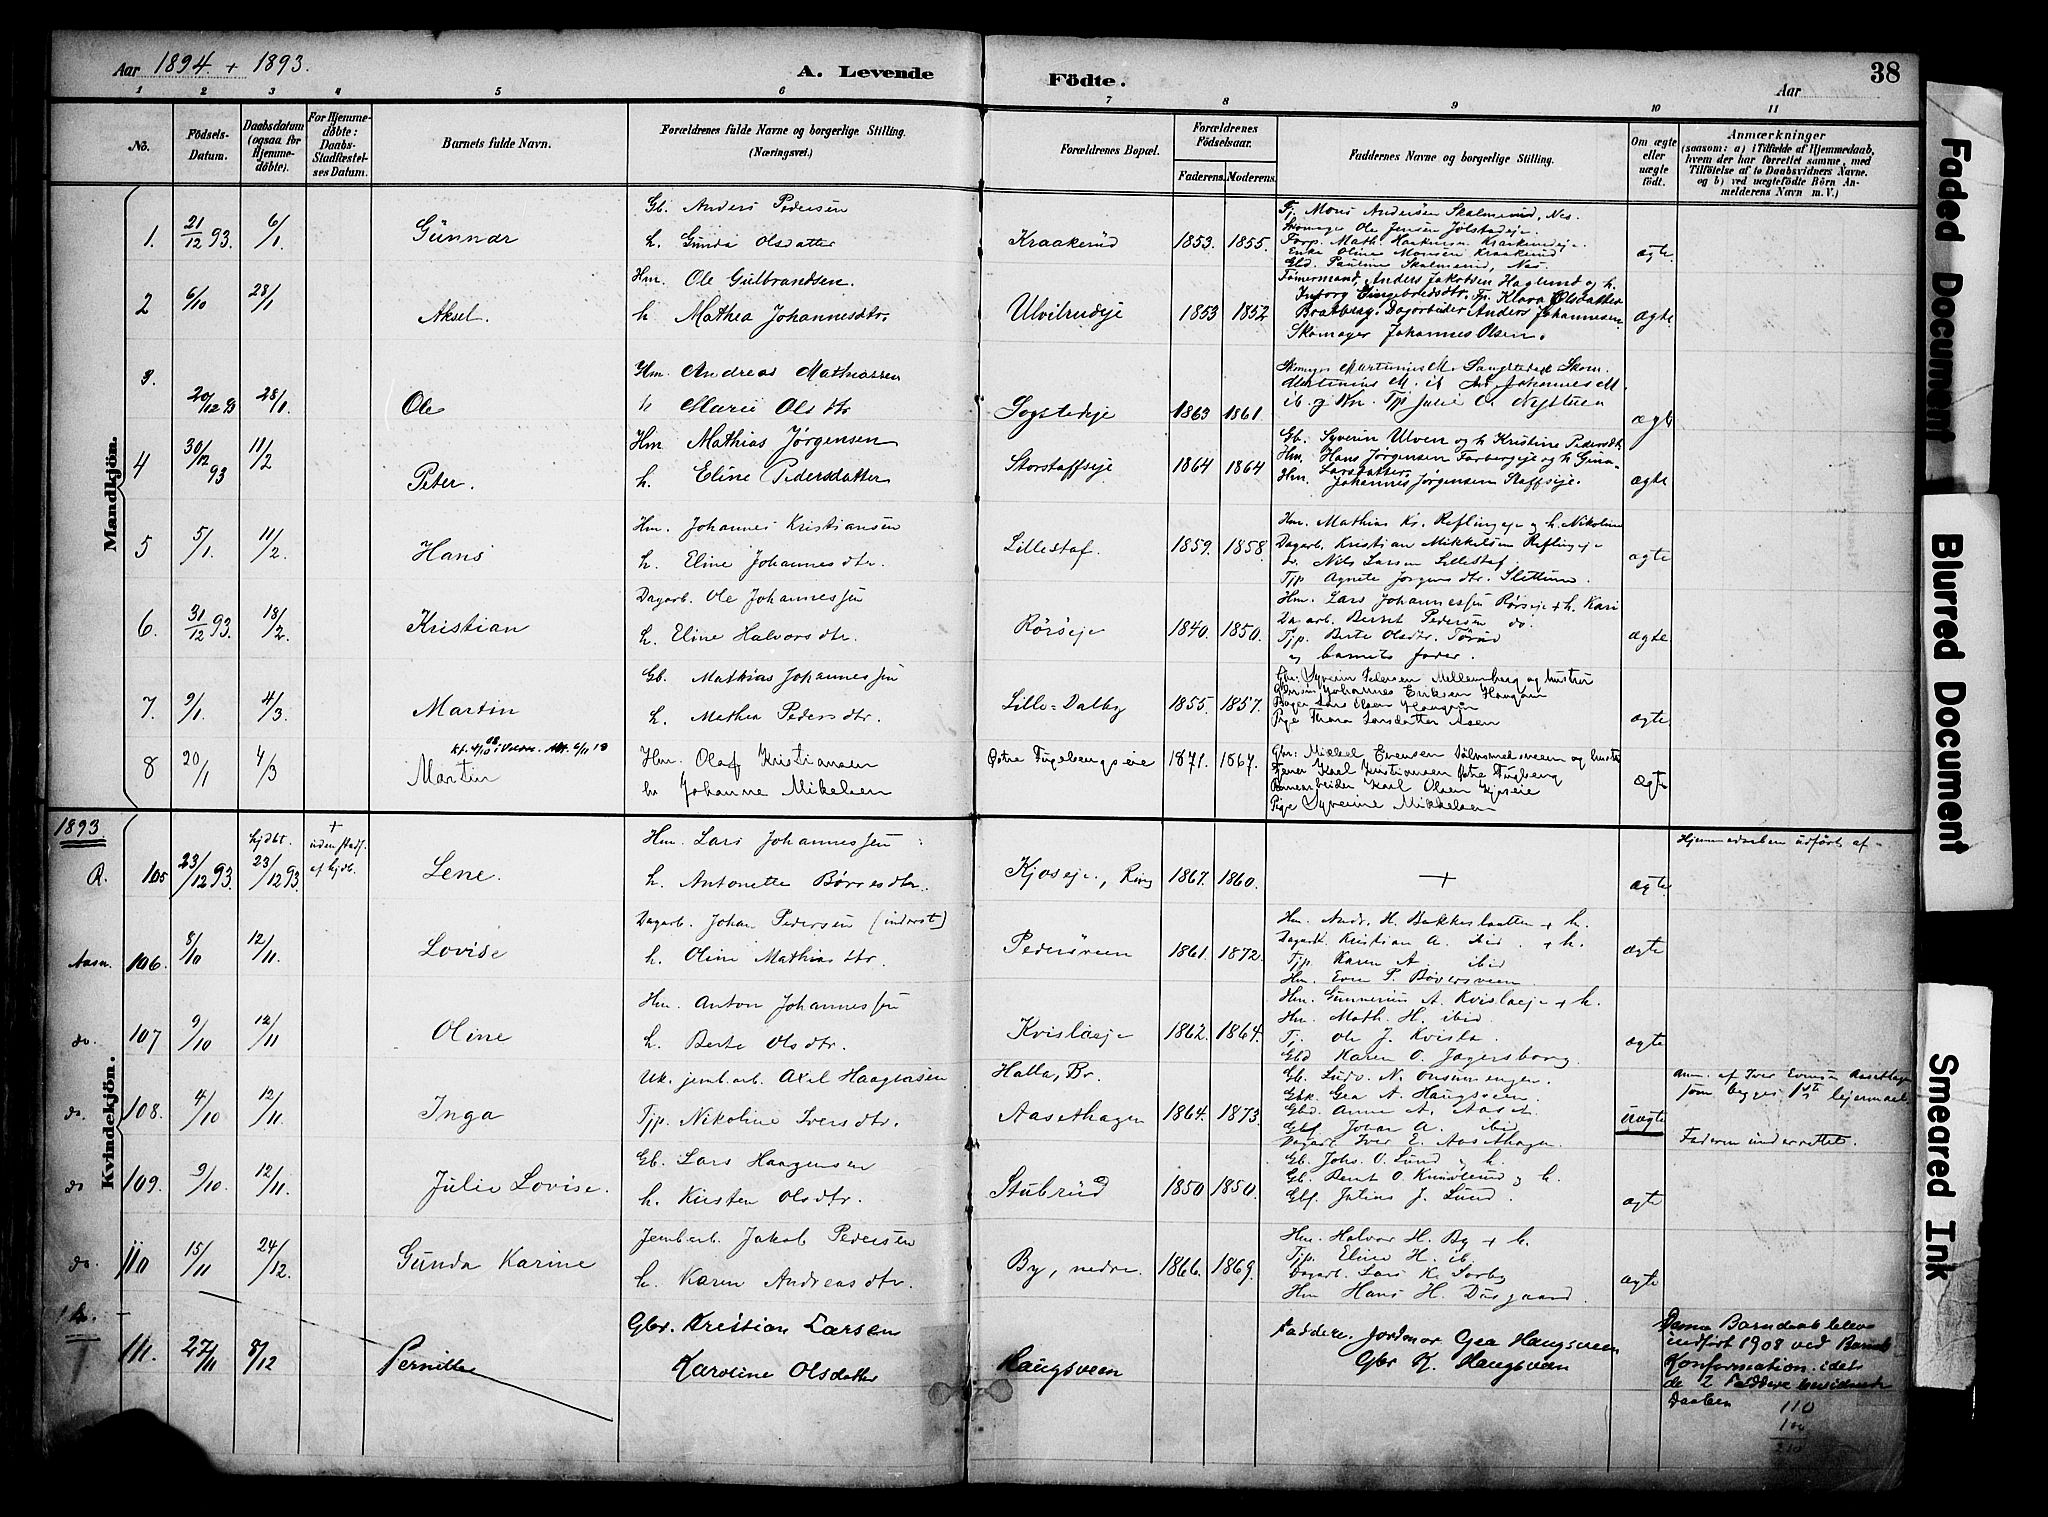 Aar 1894. + 1893.
A. Levende Födte.
Aar
38
1 2 3 4 5 6 7 8 9 10 11
No.
Födsels-Datum.
Daabsdatum (ogsaa for Hjemme-døbte).
For Hjemme-døbte: Daabs-Stadfæstel-ses Datum.
Barnets fulde Navn.
Forældrenes fulde Navne og borgerlige Stilling. (Næringsvei.)
Forældrenes Bopæl.
Forældrenes Födselsaar.
Faderens. Moderens.
Faddernes Navne og borgerlige Stilling.
Om ægte eller uægte födt.
Anmærkninger
(saasom: a) i Tilfælde af Hjemmedaab, hvem der har forrettet samme, med Tilföielse af to Daabsvidners Navne. og b) ved uægtefödte Börn An-melderens Navn m. V.)
Mandkjön.
1. 21/12 93. 6/1 Gunnar
Gb. Anders Pedersen
h. Gunda Olsdatter
Kraakerud 1853. 1855.
Tj. Mons Andersen Skalmerud, Nes.
Skomager Ole Jensen Jølstadeje.
Forp. Math. Haakensen Kraakerudeje.
Enke Oline Monsen Kraakerud
Gbd. Pauline Skalmerud, Nes.
ægte.
2 6/10 28/1 Aksel.
Hm. Ole Gulbrandsen.
h. Mathea Johannesdtr.
Ulvilrudeje 1853 1852
Tømermand, Anders Jakobsen Haglund og h.
Inborg Engebredsdtr. Tp. Klara Olsdatter
Bratberg. Dagarbeider Anders Johannesen
Skomager Johannes Olsen.
ægte
3. 20/12 93 28/1. Ole
Hm. Andreas Mathiassen
h Marie Olsdtr
Sogstedeje 1863 1861.
Martinius M. ib Johannes M.
ib. Tjp Julie O.
ægte
4 30/12 93 11/2 Peter.
Hm Mathias Jørgensen
h. Eline Pedersdatter
Storstaffseje 1864 1864
Gb. Syverin Ulven og h Kristine Pedersdt.
Hm. Hans Jørgensen Farbergeje og h Gina
Larsdatter.
Hm. Johannes Jørgensen Staffseje.
ægte
5 5/1. 11/2. Hans
Hm. Johannes Kristiansen
h. Eline Johannesdtr.
Lillestaf. 1859. 1858.
Hm. Mathias Kr. Reflingeje og h. Nikoline
Dagarb. Kristian Mikkelsen Reflingeje
do. Nils Larsen Lillestaf.
Tjp Agnete Jørgensdtr. Slettum
ægte
6. 31/12 93. 18/2. Kristian
Dagarb. Ole Johannessen
h. Eline Halvorsdtr.
Rørseje 1840. 1850.
Hm. Lars Johannessen Rørseje + h. Kari
Dagarb. Bernt Pedersen do.
Tjp. Berte Olsdtr. Torud
og barnets fader.
ægte
7. 9/1. 4/3. Martin
Gb. Mathias Johannessen
h. Mathea Pedersdtr.
Lille-Dalby 1855. 1857.
Gbr: Syverin Pedersen Mellemberg og hustru
Johannes Eriksen Haugen
Lars Olsen Haugen
Pige Thora Larsdatter Aasen
ægte
8 20/1 4/3 Martin
Hm. Olaf Kristiansen
h. Johanne Mikelsen
Østre Fugelsengseie 1871. 1867.
Gbr: Mickel Evensen og hustru
Karl Kristiansen Østre Fugleseng
Karl Olsen
Pige Syverine Mikkelsen
ægte
1893
Kvindekjön.
R. 105 23/12 93. hjdbt. 23/12 93. + uden stadf. af hjdb.
Lene.
Hm. Lars Johannessen
h. Antonette Børresdtr.
Kjoseje, Ring 1867. 1860.
+
ægte
Hjemmedaaben udført af -
Aasm. 106. 8/10 12/11. Lovise
Dagarb. Johan Pedersen (inderst)
h. Oline Mathiasdtr.
Pedersveen 1861. 1872.
Hm. Andr. H. Bakkeslaatten + h.
Dagarb. Kristian A. ibid. + h.
Tjp. Karen A. ibid
Hm. Even P. Bøversveen.
ægte
do. 107 9/10 12/11 Oline
Hm. Anton Johannessen
h. Berte Olsdtr.
Kvislaeje 1862. 1864.
Hm. Gunnerius A. Kvislaeje + h.
Hm. Math. H. ibid.
Tj. Ole J. Kvisla.
Gbd Karen O. Jagersborg.
ægte
do. 108. 4/10 12/11. Inga
Uk. jernb.arb. Axel Haagensen
Tjp. Nikoline Iversdtr.
Halla, Br.
Aasethagen 1864. 1873.
Gb. Ludv. N. Onsumengen.
Gbk. Gea A. Haugsveen.
Gbd. Anne A. Aaset.
Gbf. Johan A. ibid
Dagarb. Iver E. Aasethagen.
uægte
Anm. af Iver Evensen Aasethagen
som begges 1ste lejermaal.
Faderen underrettet.
do 109. 9/10. 12/11. Julie Lovise.
Gb. Lars Haagensen
h. Kirsten Olsdtr.
Stubrud 1850. 1850.
Gb. Johs. O. Lund og h.
Gb. Bernt O. Knudslund og h.
Gbf. Julius J. Lund.
ægte
do. 110 15/11 24/12. Gunda Karine
Jernb.arb. Jakob Pedersen
h. Karen Andreasdtr.
By, nedre. 1866. 1869.
Hm. Halvor H. By + h.
Tjp. Eline H. ib.
Dagarb. Lars K. Sorby
Hm Hans H. Disgaard.
ægte
111. 27/11 8/12 Pernille
Gbr. Kristian Larsen
Karoline Olsdatter
Haugsveen
Faddere. Jordmor Gea Haugsveen
Gbr K. Haugsveen
Denne Barnedaab blev
indført 1908 ved Barnets
Konformation. idet
de 2 Faddere bevidnet
Daaben
110
100
210
Faded Document
Blurred Document
Smeared Ink